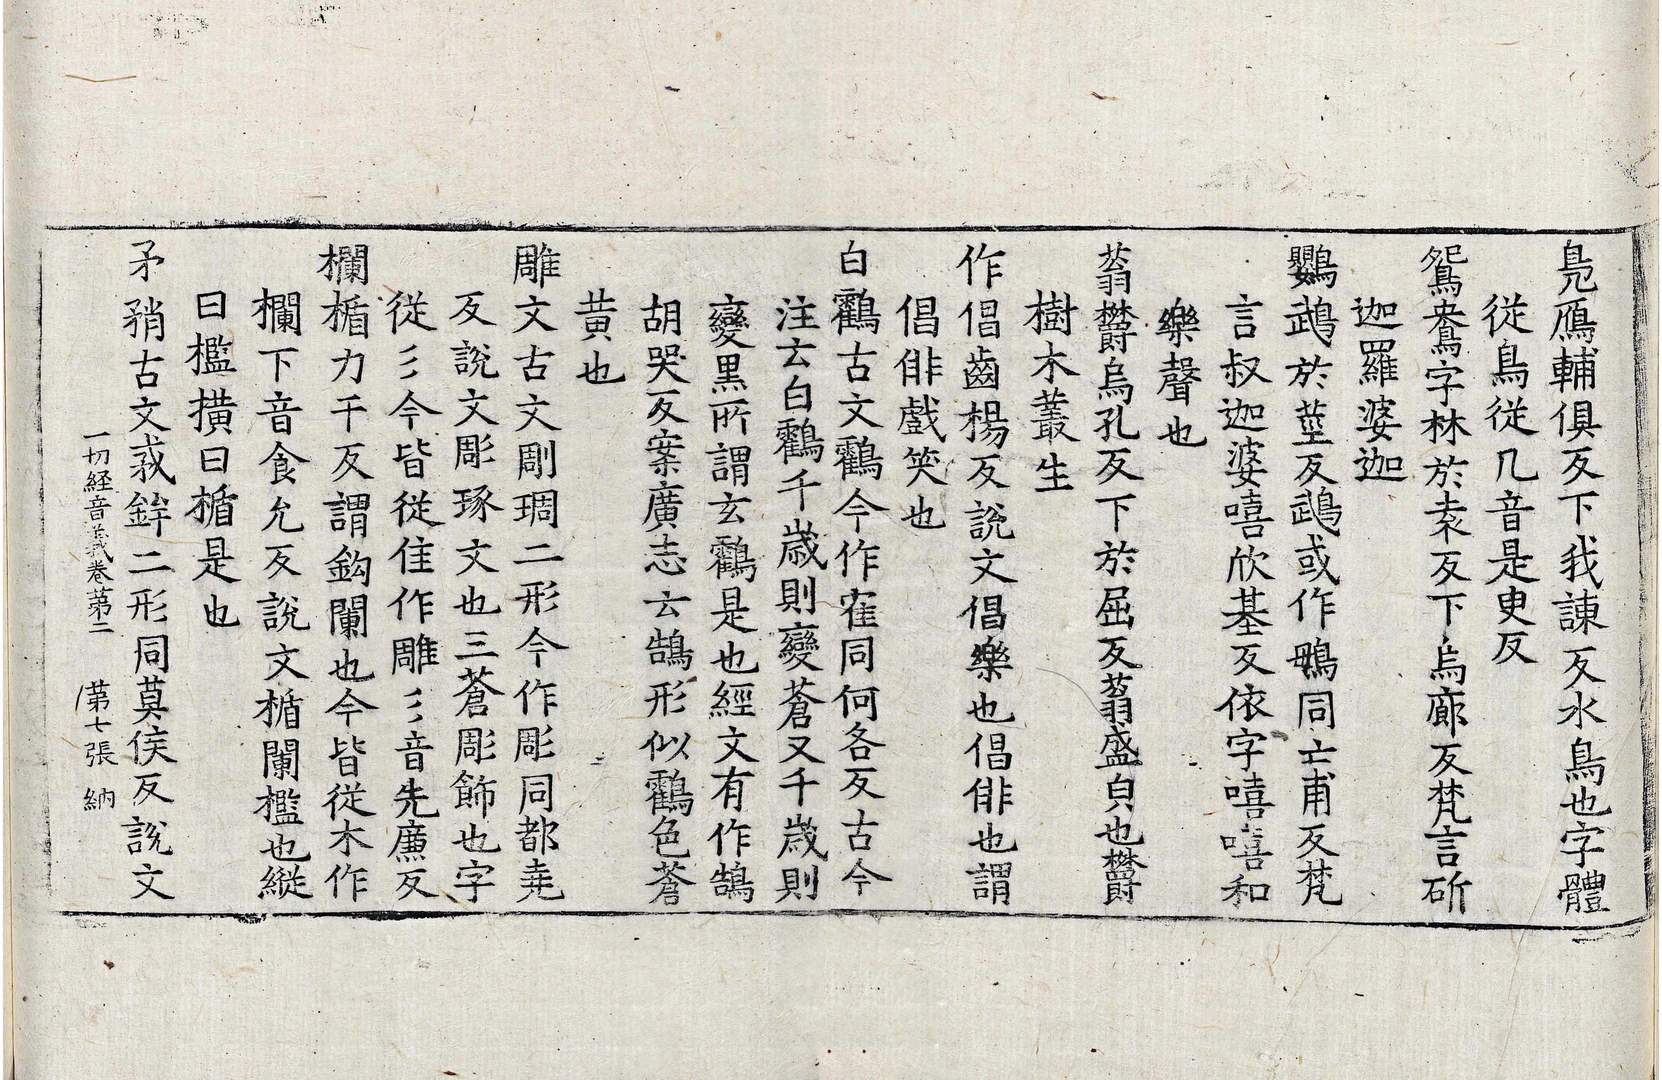 鳧鴈輔俱反下我諫反水鳥也字體
從鳥從几音是臾反
鴛鴦字林於袁反下烏廊反梵言斫
迦羅婆迦
鸚鵡於莖反鵡或作䳇同亡甫反梵
言叔迦婆嘻欣基反依字嘻嘻和
樂聲也
蓊欝烏孔反下於屈反蓊盛皃也欝
樹木叢生
作倡齒楊反說文倡樂也倡俳也謂
倡俳戲笑也
白鸖古文鸖今作寉同何各反古今
注云白鸖千歲則變蒼又千歲則
變黒所謂玄鸖是也經文有作鵠
胡哭反案廣志云鵠形似鸖色蒼
黄也
雕文古文剛琱二形今作彫同都堯
反說文彫琢文也三蒼彫飾也字
從彡今皆從隹作雕彡音先廉反
欄楯力干反謂鉤闌也今皆從木作
欄下音食允反說文楯闌檻也縱
曰檻横曰楯是也
矛矟古文𢦧鉾二形同莫侯反說文
一切経音義卷第二　第七張　納